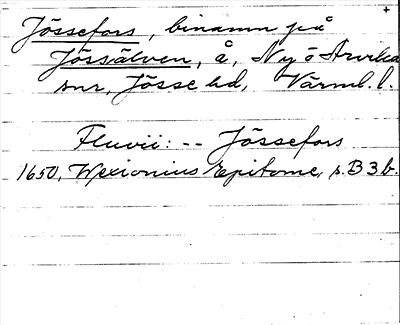 +
Jössefors, binamn på
Jössälven, å, Ny o Arvika
snr, Jösse hd, Värml. l.
Fluvii: -- Jössefors
1650, Wexionius Epitome, s. B 3 b.